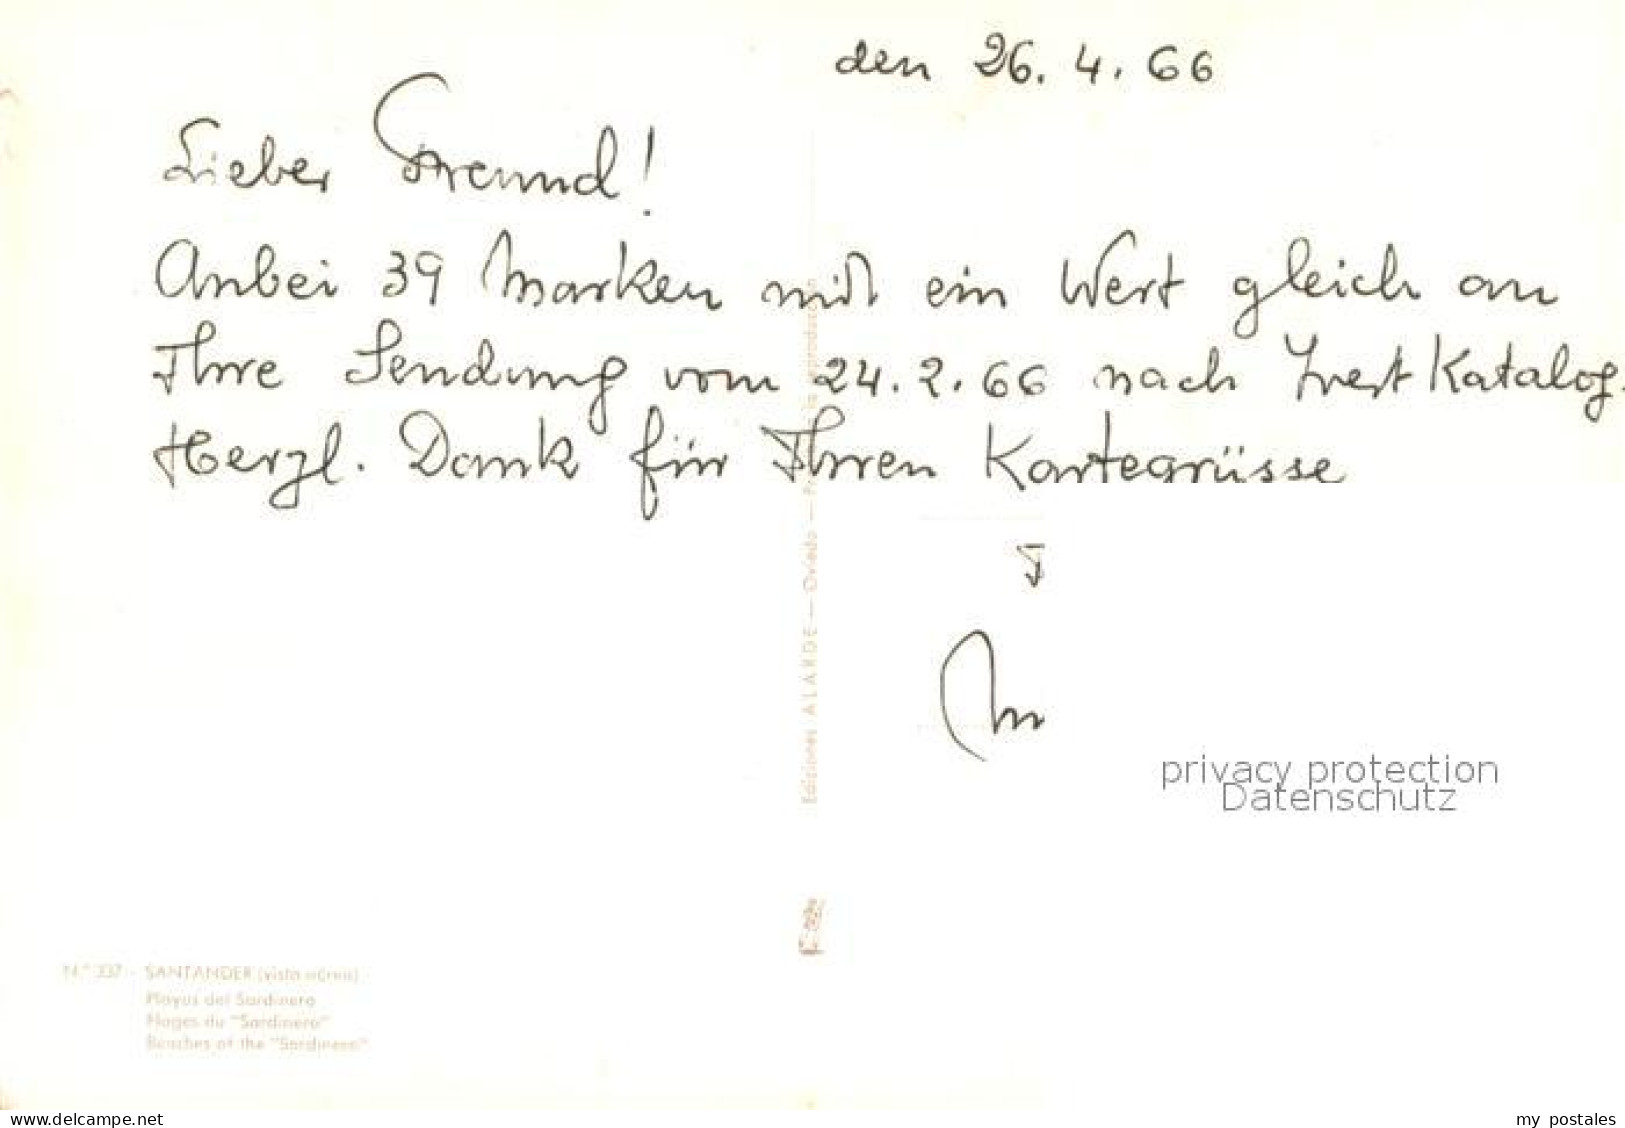 den 26. 4. 66
Lieber Freund!
Anbei 39 Marken mit ein Wert gleich an
Ihre Sendung vom 24. 2. 66 nach Ivert Katalog.
Herzl. Dank für Ihren Kartegrüsse
Ediciones ALARDE — Oviedo — Prohibida la reproducción
privacy protection
Datenschutz
N.º 337 - SANTANDER (vista aérea)
Playas del Sardinero
Plages du "Sardinero"
Beaches of the "Sardinero"
www.delcampe.net
my_postales